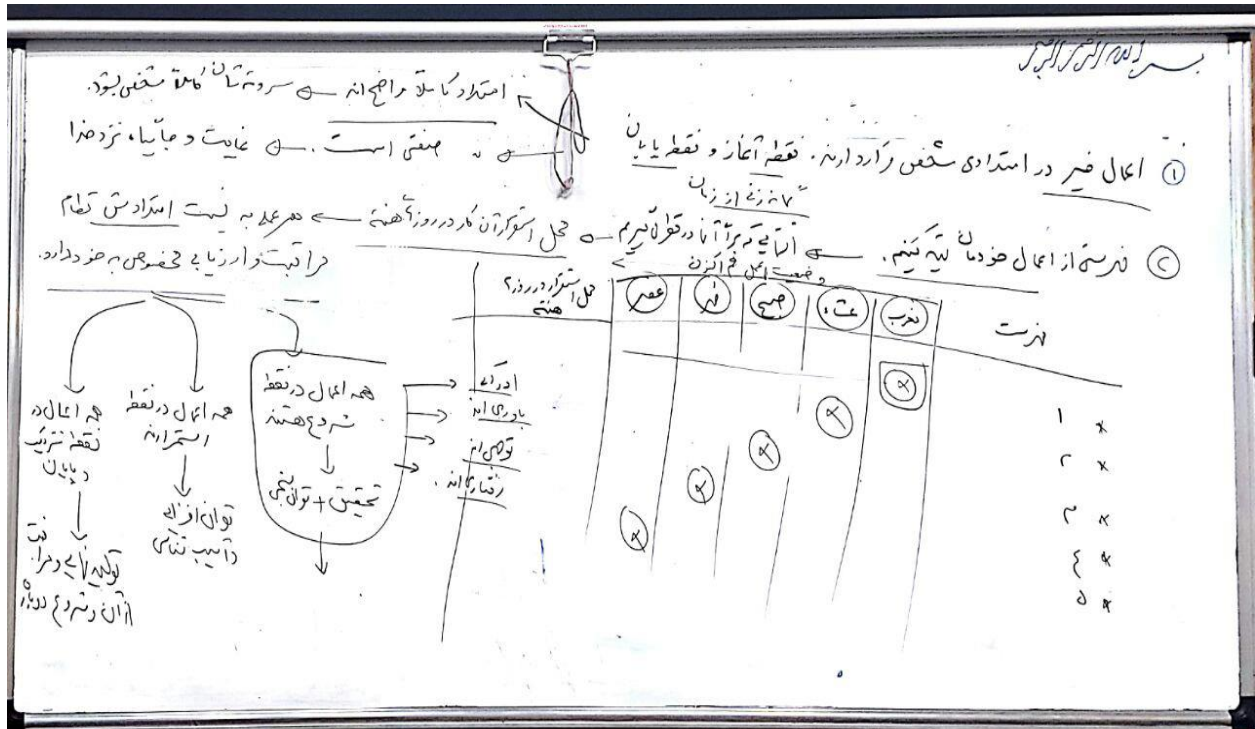 بسم الله الرحمن الرحیم
① اعمال خیر در امتدادی مشخص قرار دارند. نقطه آغاز و نقطه پایان
امتداد کاملاً واضح اند ← سر و ته شان کاملاً مشخص بشود.
صنفی است. ← غایت و جأنبأه نزد خدا
② فهرستی از اعمال خودمان تهیه کنیم. ←
محل استقرار آن کار در روز هفته ← هر عملی به نسبت امتدادش نظام
مراقبت و ارزیابی مخصوص به خود دارد.
و ضعیت اعمال هم اکنون
فهرست
مغرب
عشاء
صبح
ظهر
عصر
محل استقرار در روز؟
هفته
x ۱
x ۲
x ۳
x ٤
x ۵
x
x
x
x
x
ادراکی
باوری اند
توصی اند
رفتاری اند.
همه اعمال در نقطه
شروع هستند
تحقیق + توان
همه اعمال در نقطه
استمرارند
توان افزایی
و آسیب شناسی
همه اعمال در
نقطه نزدیک
پایان
از آن و شروع دوباره